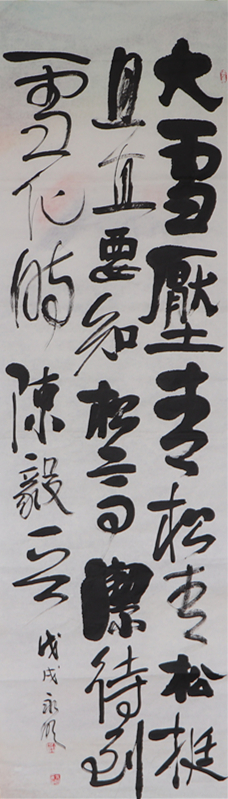 大雪壓青松青松挺
且直要知松高潔待到
雪化時陳毅
戊戌永